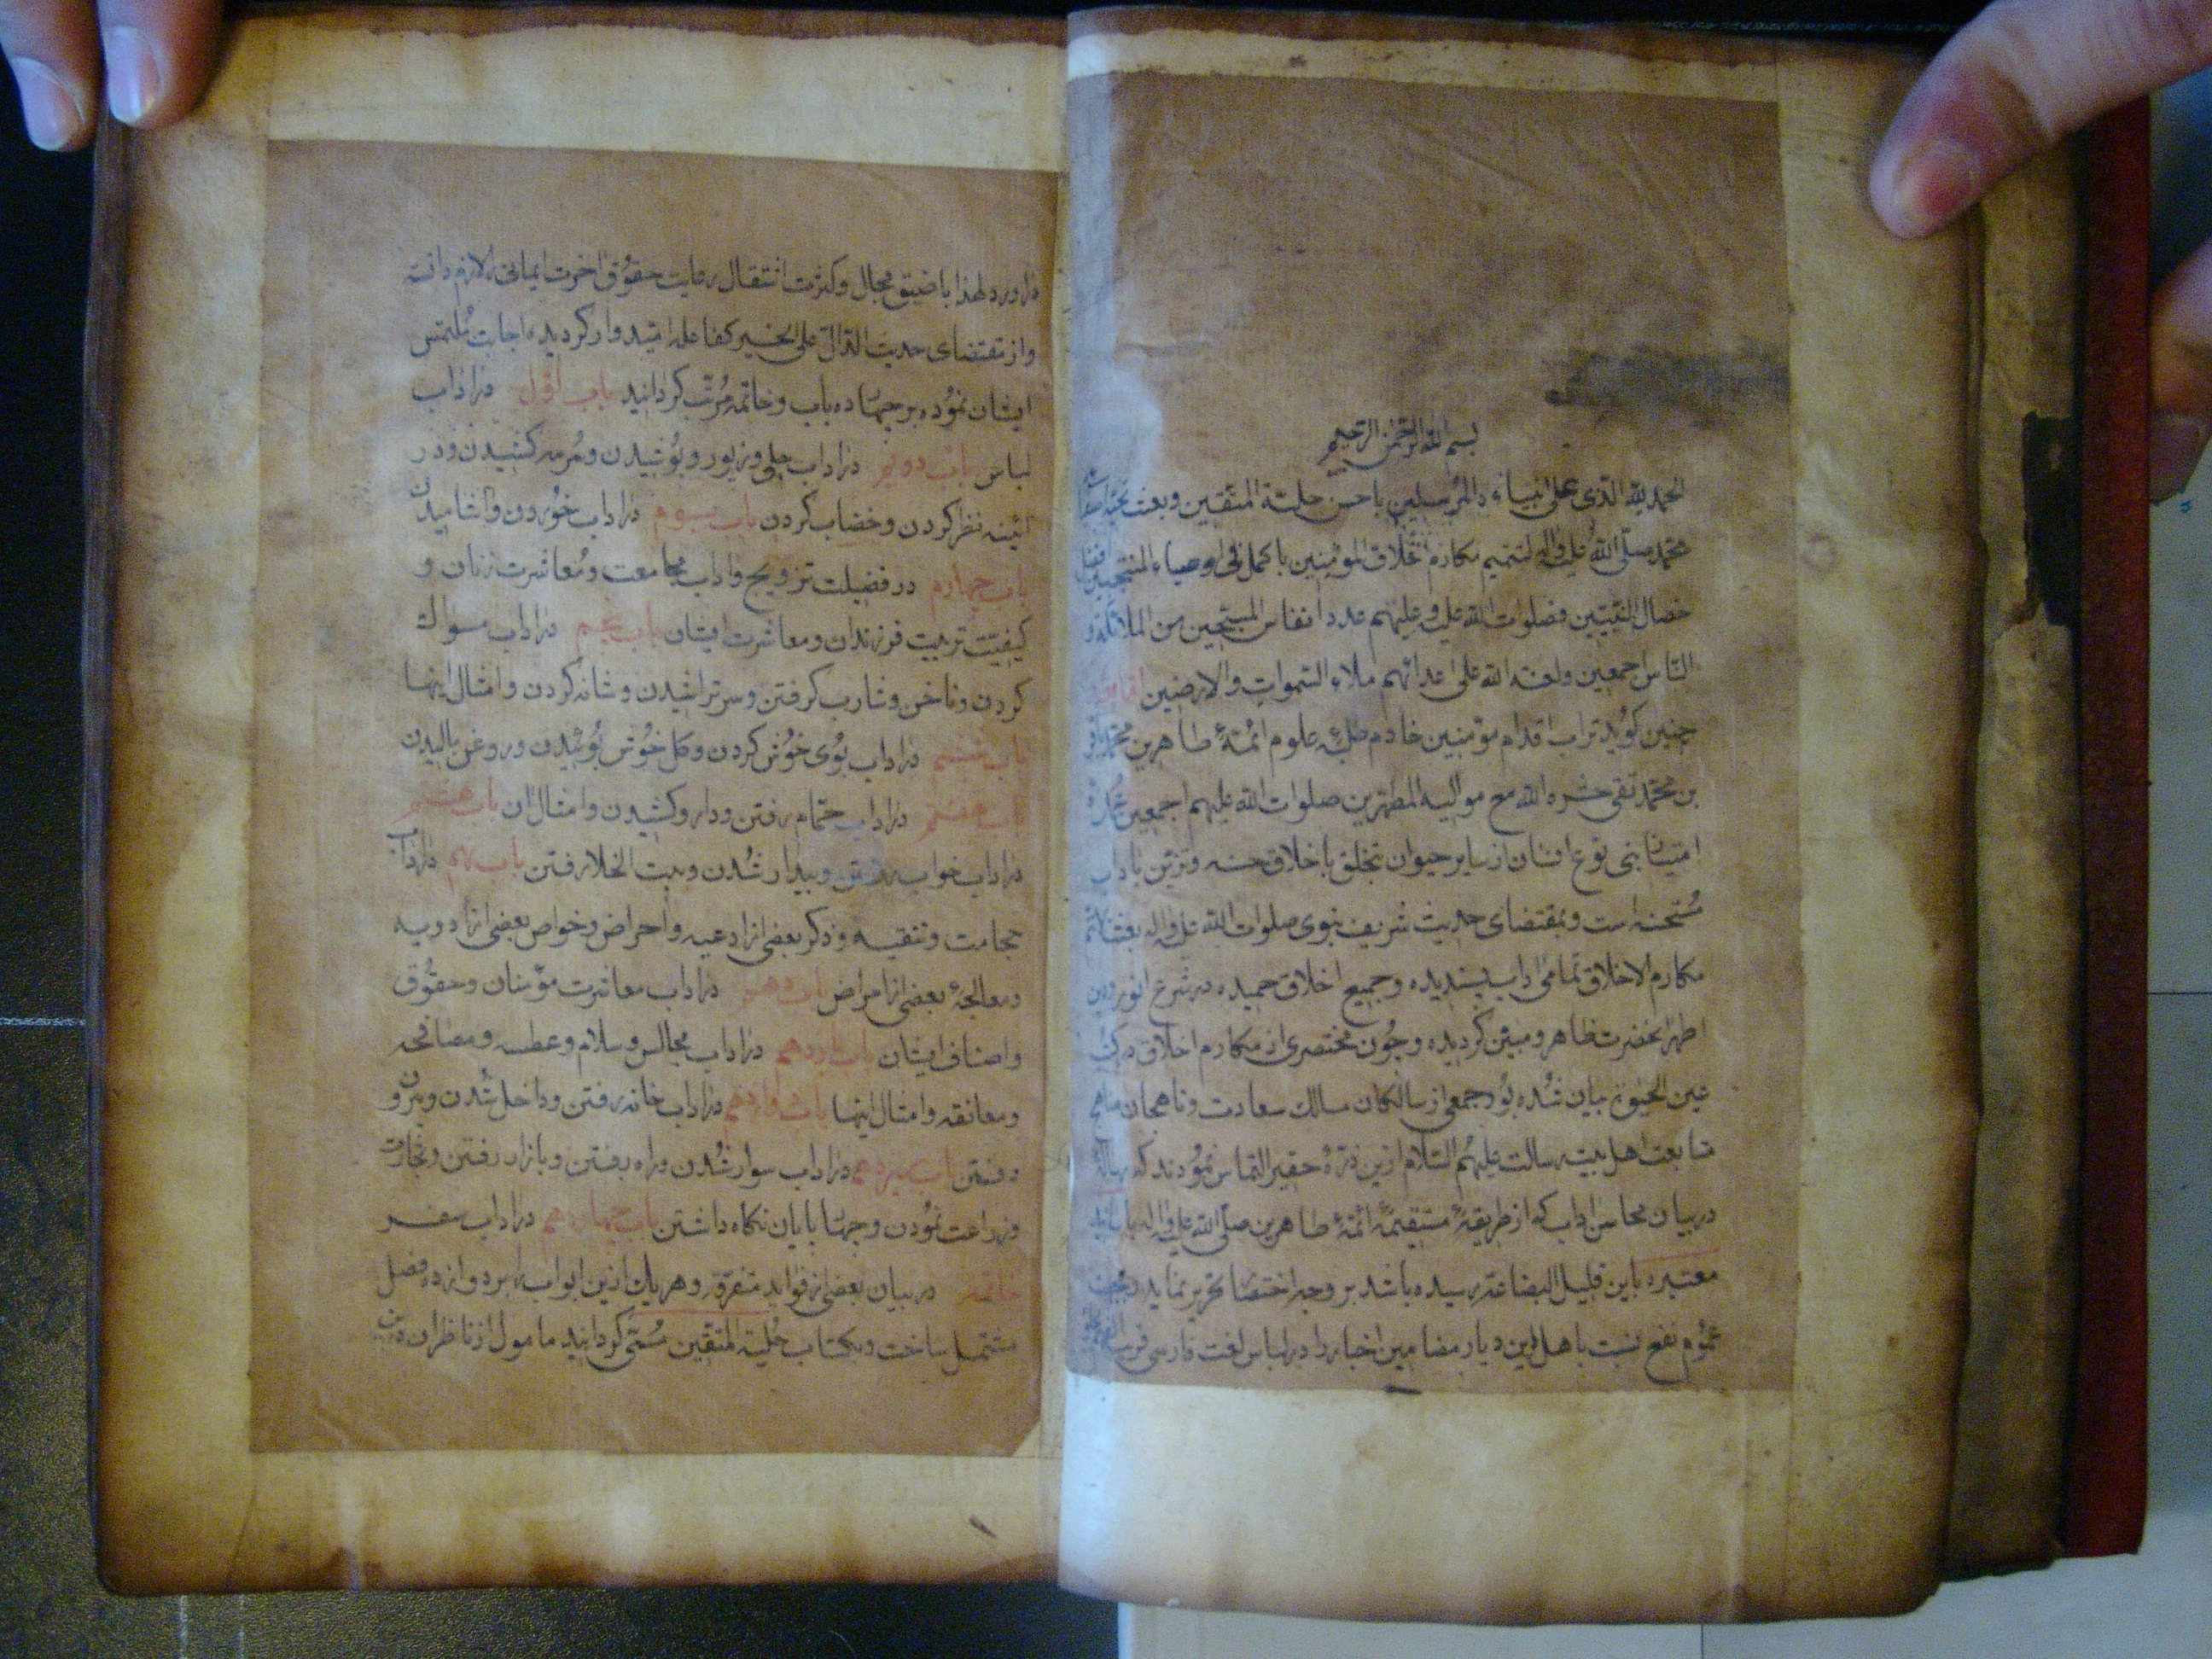 بسم الله الرحمن الرحیم
الحمد لله الذی حلی انبیاءه المرسلین باحسن حلیة المتقین وبعث
محمد صلی الله علیه واله لتتمیم مکارم اخلاق المؤمنین باکمل اوصیاء المنتجبین
خصال النبیین فصلوات الله علیه وعلیهم عدد انفاس المسبحین من الملائکة و
الناس اجمعین ولعنة الله علی اعدائهم ملاء السموات والارضین اما بعد
چنین کوید تراب اقدام مؤمنین خادم طلبه علوم ائمهٔ طاهرین محمد باقر
بن محمد تقی حشره الله مع موالیه المطهرین صلوات الله علیهم اجمعین که
امتیاز بنی نوع انسان از سایر حیوان بتخلق باخلاق حسنه وتزین باداب
مستحسنه است وبمقتضای حدیث شریف نبوی صلوات الله علیه واله بعثت لاتمم
مکارم الاخلاق تمامی اداب پسندیده وجمیع اخلاق حمیده در شرع انور ودین
اطهر انحضرت ظاهر ومبین کردیده وچون مختصری از مکارم اخلاق در کتاب
عین الحیوة بیان شده بود جمعی از سالکان مسالک سعادت وناهجان مناهج
متابعت اهل بیت رسالت علیهم السلام ازین ذرهٔ حقیر التماس نمودند که رسالهٔ
در بیان محاسن اداب که از طریقهٔ مستقیمهٔ ائمهٔ طاهرین صلی الله علیه واله باسانید
معتبره باین قلیل البضاعة رسیده باشد بر وجه اختصار تحریر نماید وبجهت
عموم نفع نسبت باهل این دیار مضامین اخبار را در لباس لغت فارسی
در اورد لهذا با ضیق مجال وکثرت اشتغال رعایت حقوق اخوت ایمانی را لازم دانسته
واز مقتضای حدیث الدال علی الخیر کفاعله امیدوار کردیده اجابت ملتمس
ایشان نموده بر چهارده باب وخاتمه مرتب کردانید باب اول در اداب
لباس باب دویم در اداب حلی وزیور وپوشیدن وسرمه کشیدن ودر
ائینه نظر کردن وخضاب کردن باب سیوم در اداب خوردن واشامیدن
باب چهارم در فضیلت تزویج واداب مجامعت ومعاشرت زنان و
کیفیت تربیت فرزندان ومعاشرت ایشان باب پنجم در اداب مسواک
کردن وناخن وشارب کرفتن وسر تراشیدن وشانه کردن وامثال اینها
باب ششم در اداب بوی خوش کردن وکل خوش بوئیدن وروغن مالیدن
باب هفتم در اداب حمام رفتن ودارو کشیدن وامثال ان باب هشتم
در اداب خواب رفتن وبیدار شدن وبیت الخلا رفتن باب نهم در اداب
حجامت وتنقیه وذکر بعضی از ادعیه واحراز وخواص بعضی از ادویه
ومعالجهٔ بعضی از امراض باب دهم در اداب معاشرت مؤمنان وحقوق
واصناف ایشان باب یازدهم در اداب مجالس وسلام وعطسه ومصافحه
ومعانقه وامثال اینها باب دوازدهم در اداب خانه رفتن وداخل شدن وبیرون
رفتن باب سیزدهم در اداب سوار شدن وراه رفتن وبازار رفتن وتجارت
وزراعت نمودن وچهارپایان نکاه داشتن باب چهاردهم در اداب سفر
خاتمه در بیان بعضی از فواید متفرقه وهر یک ازین ابواب را بر دوازده فصل
مشتمل ساخت وبکتاب حلیة المتقین مسمی کردانید مامول از ناظران